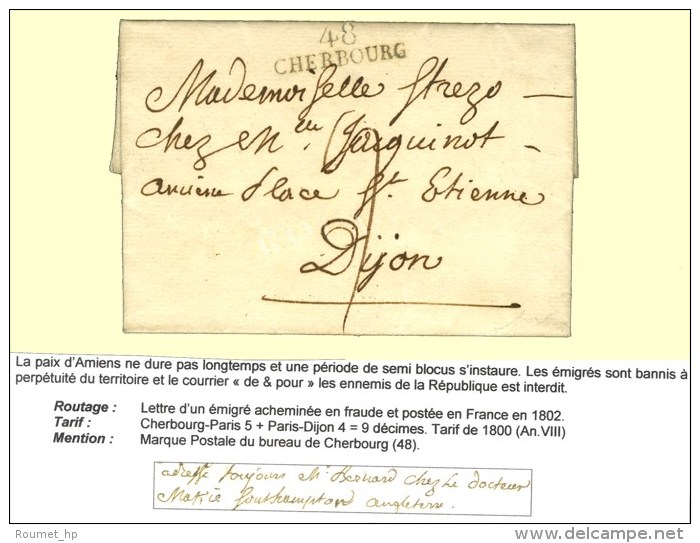 48
CHERBOURG
Mademoiselle Strezo —
chez Mr. Jacquinot -
ancienne place St. Etienne
Dijon
La paix d'Amiens ne dure pas longtemps et une période de semi blocus s'instaure. Les émigrés sont bannis à
perpétuité du territoire et le courrier « de & pour » les ennemis de la République est interdit.
Routage : Lettre d'un émigré acheminée en fraude et postée en France en 1802.
Tarif : Cherbourg-Paris 5 + Paris-Dijon 4 = 9 décimes. Tarif de 1800 (An.VIII)
Mention : Marque Postale du bureau de Cherbourg (48).
adresse toujours Mr. Bernard chez Le docteur
Makie Southampton angleterre.
© Roumet_hp
delcampe.net